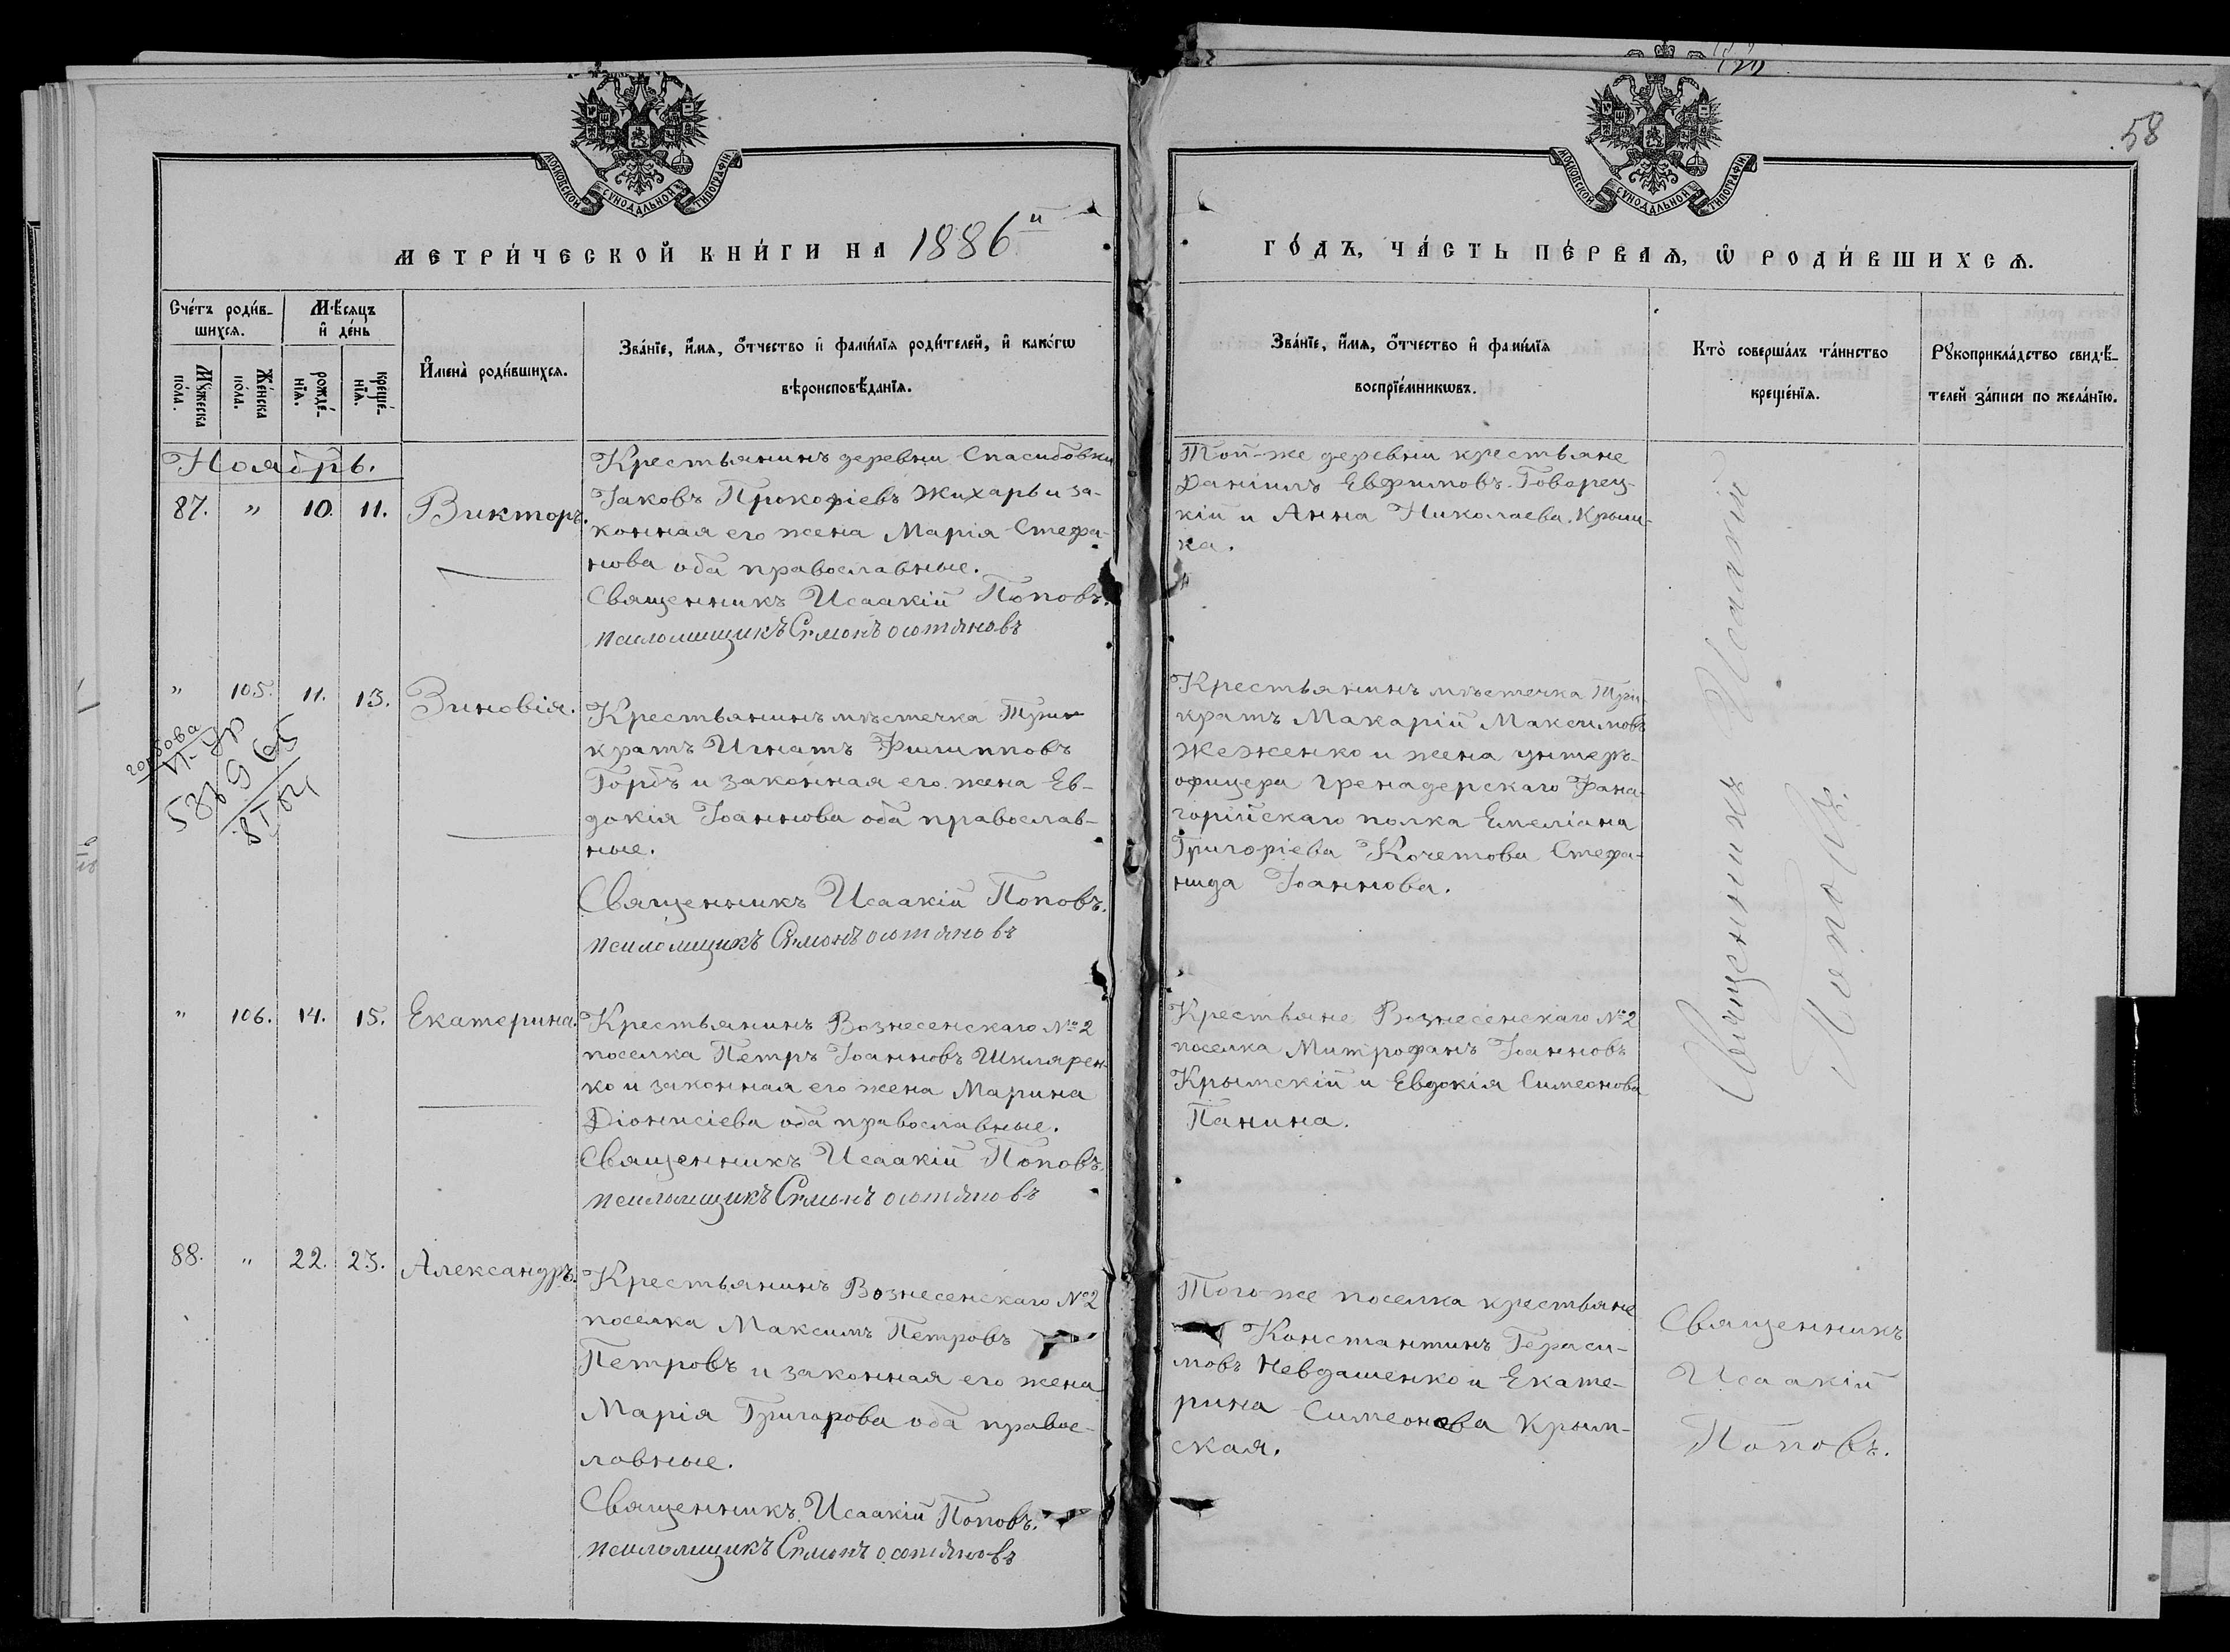 58
МОСКОВСКОЙ СѴНОДАЛЬНОЙ ТИПОГРАФІИ
МОСКОВСКОЙ СѴНОДАЛЬНОЙ ТИПОГРАФІИ
МЕТРИ́ЧЕСКОЙ КНИ́ГИ НА 1886й
ГО́ДЪ, ЧА́СТЬ ПЕ́РВАѦ, Ѡ РОДИ́ВШИХСѦ.
Сче́тъ роди́в-
шихся.
Мꙋ́жеска
по́ла.
Же́нска
по́ла.
Мѣ́сяцъ
и҆ де́нь
рожде́-
нїя.
креще́-
нїя.
И҆мена̀ роди́вшихся.
Зва́нїе, и҆́мя, ѻ҆́тчество и҆ фами́лїя роди́телей, и҆ како́гѡ
вѣроисповѣ́данїя.
Зва́нїе, и҆́мя, ѻ҆́тчество и҆ фами́лїя
воспрїе́мникѡвъ.
Кто̀ соверша́лъ та́инство
креще́нїя.
Рꙋкоприкла́дство свидѣ́-
телей за́писи по жела́нїю.
Ноябрь.
87. " 10. 11. Викторъ.
Крестьянинъ деревни Спасибовки
Іаковъ Прокофіевъ Жихарь и за-
конная его жена Марія Стефа-
нова оба православные.
Священникъ Исаакій Поповъ.
псаломщикъ Симонъ
Той-же деревни крестьяне
Даніилъ Евфимовъ Говорец-
кій и Анна Николаева Крыш-
ка.
" 105. 11. 13. Зиновія.
Крестьянинъ мѣстечка Три-
кратъ Игнатъ Филипповъ
Горбъ и законная его жена Ев-
докія Іоаннова оба православ-
ные.
Священникъ Исаакій Поповъ.
псаломщикъ Симонъ
Крестьянинъ мѣстечка Три-
кратъ Макарій Максимовъ
Жеженко и жена унтеръ-
офицера гренадерскаго Фана-
горійскаго полка Емеліана
Григоріева Кочетова Стефа-
нида Іоаннова.
Священникъ Исаакій
Поповъ.
" 106. 14. 15. Екатерина.
Крестьянинъ Вознесенскаго №2
поселка Петръ Іоанновъ Шкларен-
ко и законная его жена Марина
Діонисіева оба православные.
Священникъ Исаакій Поповъ.
псаломщикъ Симонъ
Крестьяне Вознесенскаго №2
поселка Митрофанъ Іоанновъ
Крымскій и Евдокія Симеонова
Панина.
88. " 22. 23. Александръ.
Крестьянинъ Вознесенскаго №2
поселка Максимъ Петровъ
Петровъ и законная его жена
Марія Григорова оба правос-
лавные.
Священникъ Исаакій Поповъ.
псаломщикъ Симонъ
Того-же поселка крестьяне
Константинъ Гераси-
мовъ Невдашенко и Екате-
рина Симеонова Крым-
ская.
Священникъ
Исаакій
Поповъ.